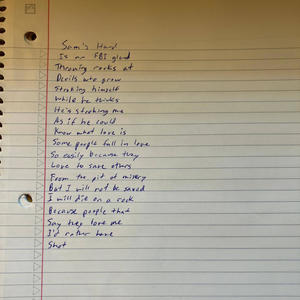 Sam's Hand
Is an FBI gland
Throwing rocks at
Devils who grow
Stroking himself
While he thinks
He's stroking me
As if he could
Know what love is
Some people fall in love
So easily because they
Love to save others
From the pit of misery
But I will not be saved
I will die on a rock
Because people that
Say they love me
I'd rather have
Shot